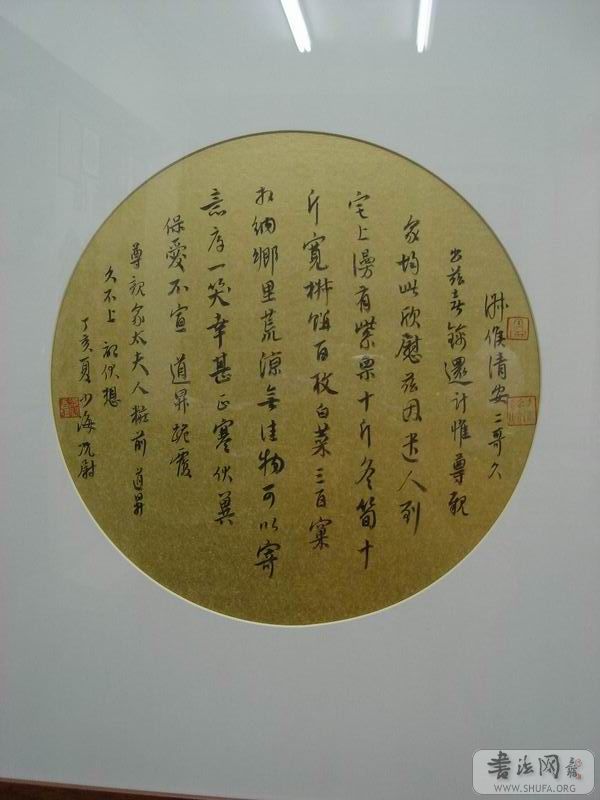 淋候清安二哥久
出兹喜錦還計惟尊親
家均此欣慰兹因遣人到
宅上謾有紫栗十斤冬筍十
斤寬栟餅百枚白菜三百窠
拜納鄉里荒凉無佳物可以寄
意度一笑幸甚正寒伏冀
保愛不宣道昇跪覆
尊親家太夫人粧前道昇
久不上記伏想
丁亥夏少海
書法网
WWW.SHUFA.ORG